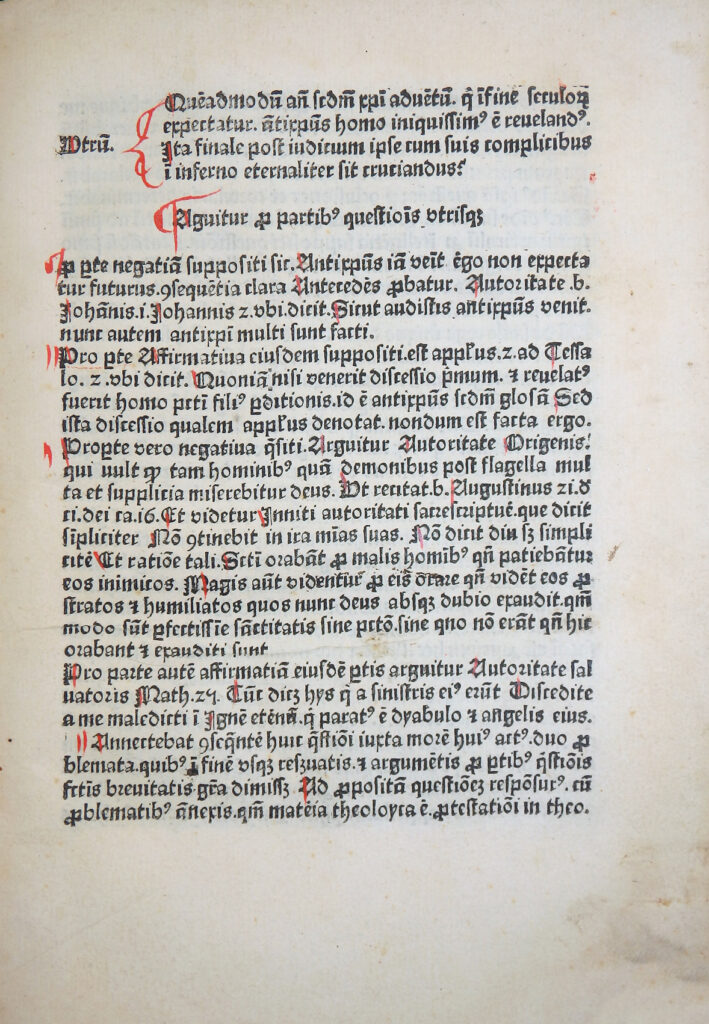 Quēadmodū añ scdm̄ xp̄i aduētū. q̄ ī fine seculoꝝ
expectatur. ātixp̄us homo iniquissimꝰ ē reuelandꝰ.
Vtrū.
Ita finale post iudicium ipse cum suis complicibus
ī inferno eternaliter sit cruciandus?
Aguitur ꝓ partibꝰ questiōis vtrisqꝫ
ꝓ ꝑte negatiā suppositi sic. Antixp̄us iā veīt ēgo non expecta
tur futurus. ꝯsequētia clara Antecedēs ꝓbatur. Autoritate .b.
Johānis. i. Johannis 2. vbi. dicit. Sicut audistis antixp̄us venit.
nunc autem antixp̄i multi sunt facti.
Pro ꝑte Affirmatiua eiusdem suppositi. est app̄lus. 2. ad Tessa
lo. 2. vbi dicit. Quoniā nisi venerit discessio p̄mum. ⁊ reuelatꝰ
fuerit homo pctī filiꝰ ꝑditionis. id ē antixp̄us scdm̄ glosā Sed
ista discessio qualem app̄lus denotat. nondum est facta ergo.
Pro ꝑte vero negatiua q̄siti. Arguitur Autoritate Origenis.
qui uult ꝙ tam hominibꝰ quā demonibus post flagella mul
ta et supplicia miserebitur deus. Vt recitat. b. Augustinus 21. d̄
ci. dei ca. 16. Et videtur Inniti autoritati sacrescriptuē. que dicit
sīpliciter Nō ꝯtinebit in ira mīas suas. Nō dicit diu sꝫ simpli
citē Et ratiōe tali. Sctī orabāt ꝓ malis homībꝰ qñ patiebātur
eos inimicos. Magis aūt videntur ꝓ eis orare qñ vidēt eos ꝓ
stratos ⁊ humiliatos quos nunc deus absqꝫ dubio exaudit. qm̄
modo sūt ꝑfectissīe sāctitatis sine pctō. sine quo nō erāt qñ hic
orabant ⁊ exauditi sunt
Pro parte autē affirmatiā eiusdē ꝑtis arguitur Autoritate sal
uatoris Math. 25. Tūc dicꝫ hys q̄ a sinistris eiꝰ erūt Discedite
a me maledicti ī Ignē etēnū. q̄ paratꝰ ē dyabulo ⁊ angelis eius.
Annectebat ꝯseq̄ntē huic q̄stiōi iuxta morē huiꝰ actꝰ. duo ꝓ
blemata. quibꝰ ī finē vsqꝫ reſꝫuatis. ⁊ argumētis ꝓ ꝑtibꝰ q̄stiōis
fctīs breuitatis gr̄a dimissꝫ Ad ꝓpositā questiōeꝫ respōsurꝰ. cū
ꝓblematibꝰ ānexis. qm̄ mateīa theoloyca ē. ꝓtestatiōi in theo.